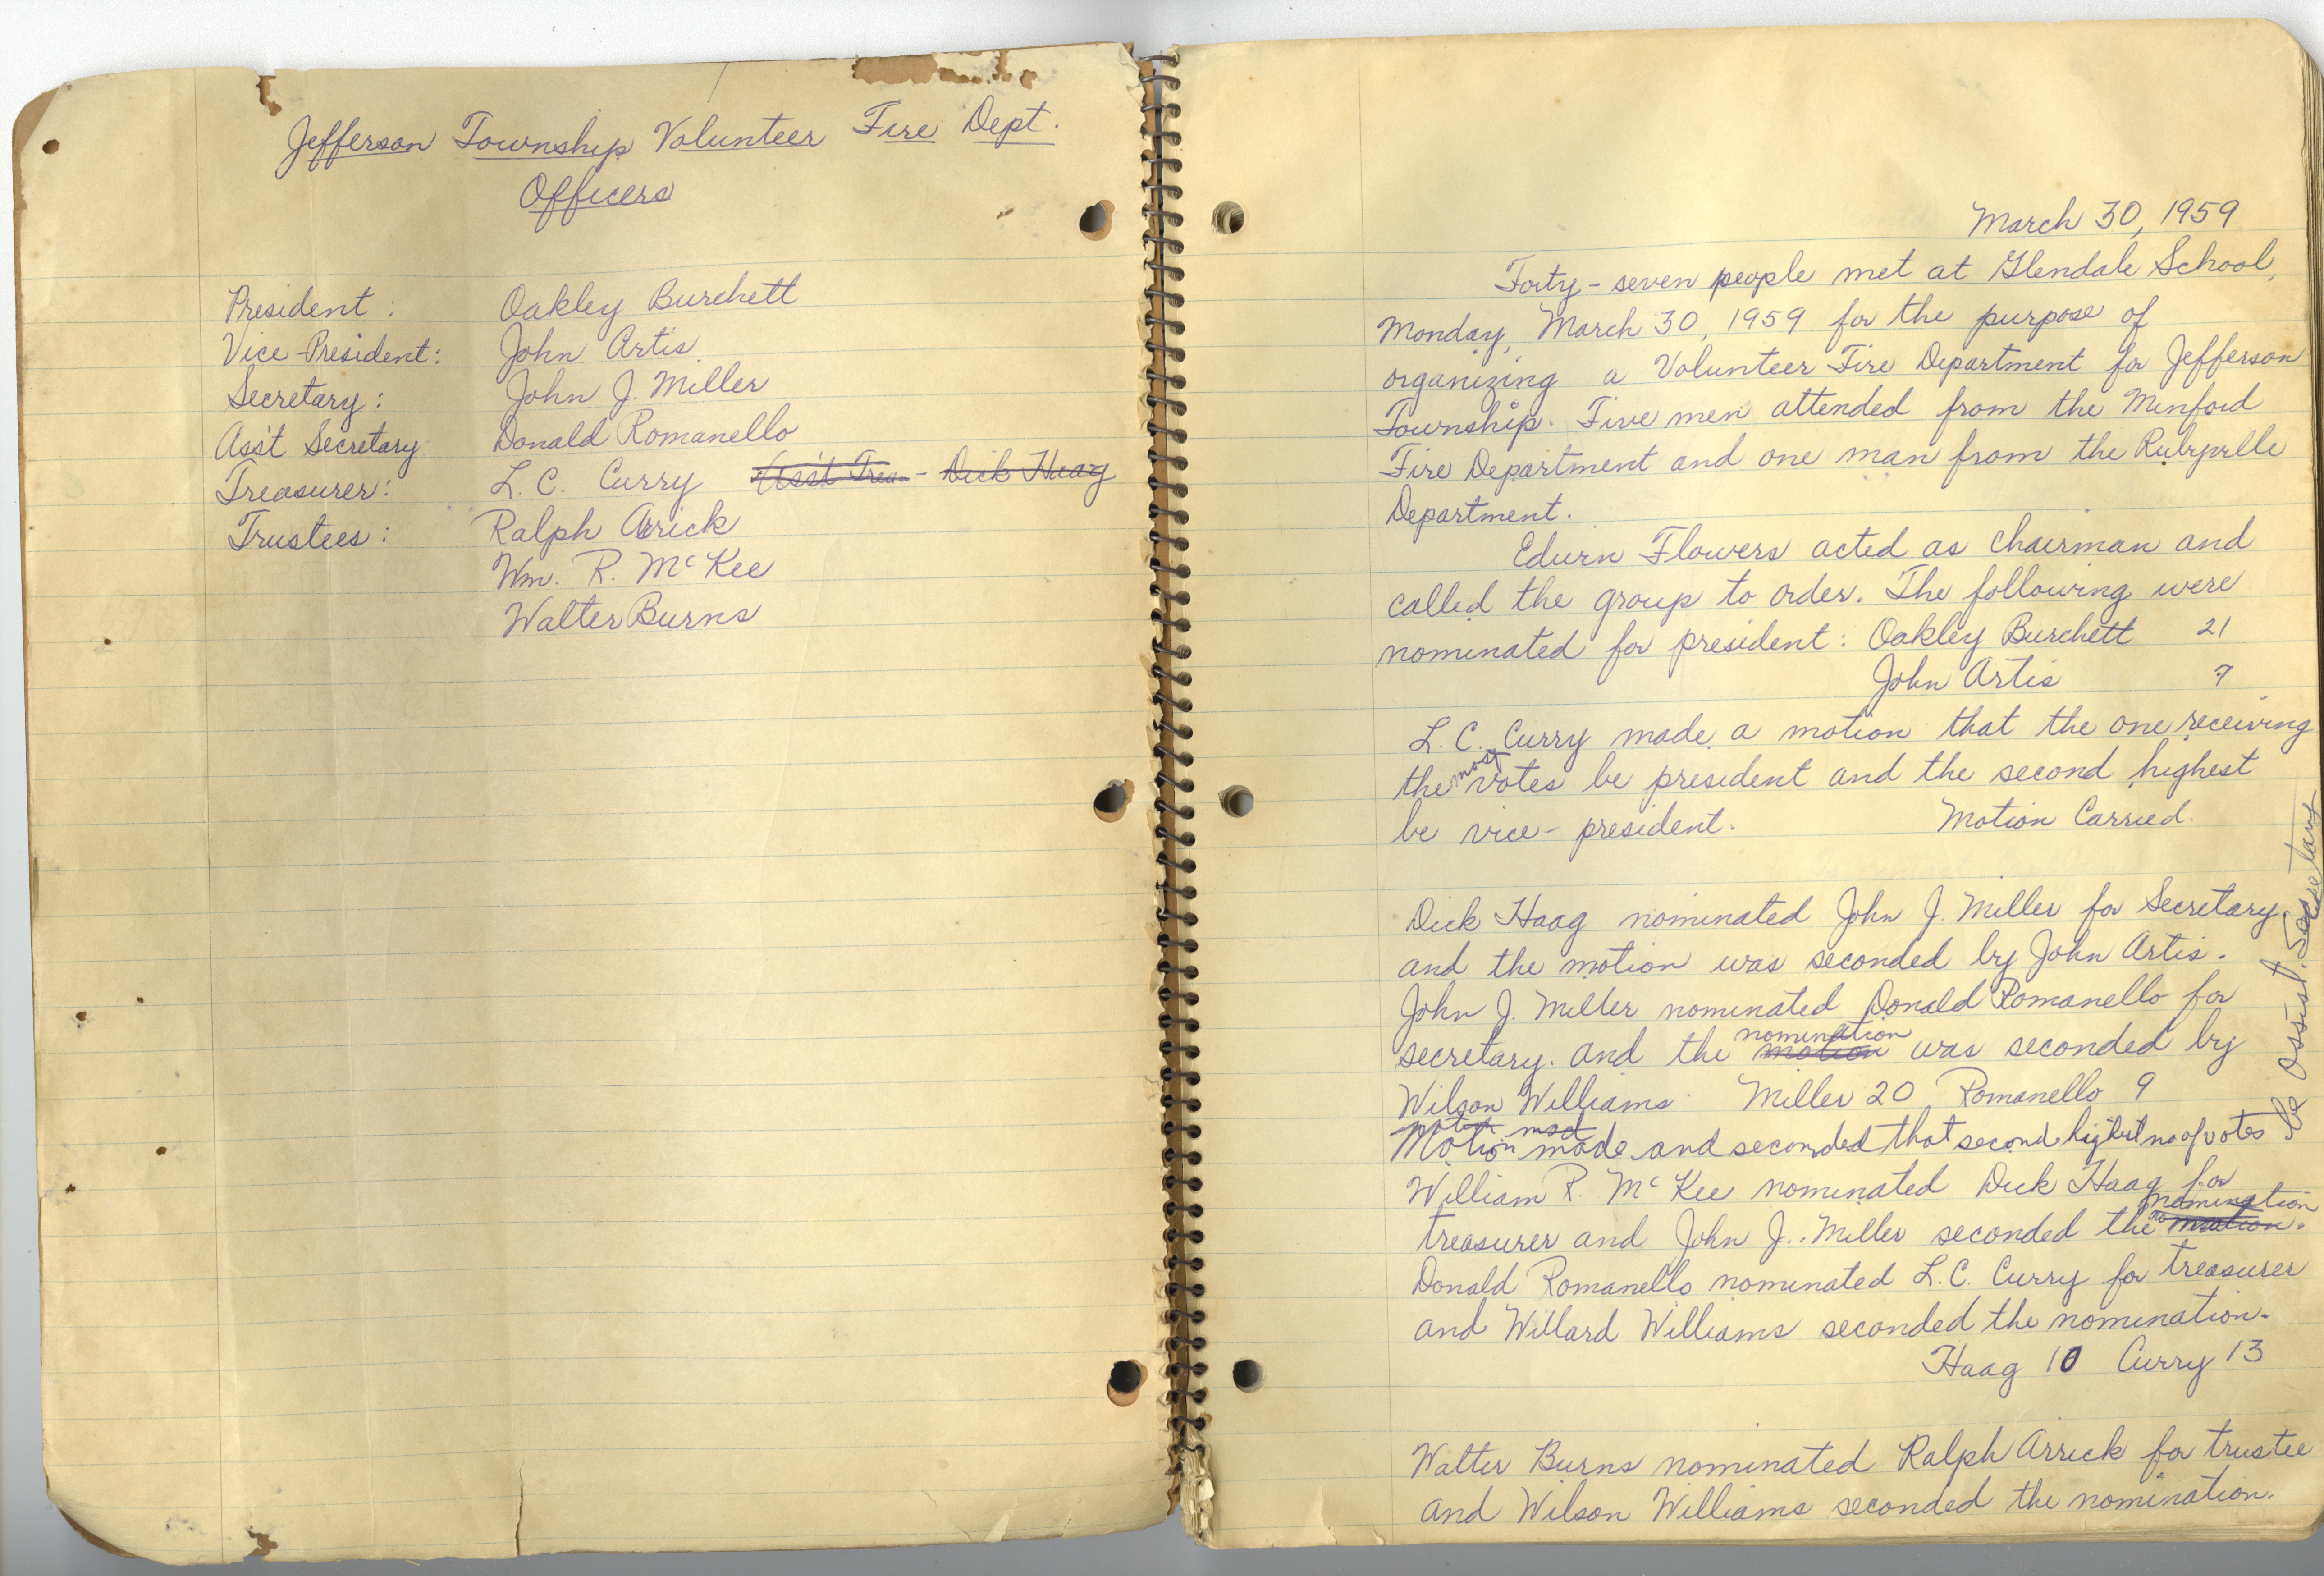 Jefferson Township Volunteer Fire Dept.
Officers
President: Oakley Burchett
Vice-President: John Artis
Secretary: John J. Miller
Ass't Secretary Donald Romanello
Treasurer: L. C. Curry Ass't Trea. - Dick Haag
Trustees: Ralph Arrick
Wm. R. McKee
Walter Burns
March 30, 1959
Forty-seven people met at Glendale School,
Monday, March 30, 1959 for the purpose of
organizing a Volunteer Fire Department for Jefferson
Township. Five men attended from the Minford
Fire Department and one man from the Rubyville
Department.
Edurn Flowers acted as chairman and
called the group to order. The following were
nominated for president: Oakley Burchett 21
John Artis 7
L. C. Curry made a motion that the one receiving
the most votes be president and the second highest
be vice-president. Motion Carried.
Dick Haag nominated John J. Miller for Secretary
and the motion was seconded by John Artis.
John J. Miller nominated Donald Romanello for
secretary. and the motion nomination was seconded by
Wilson Williams Miller 20 Romanello 9
Motion made and seconded that second highest no of votes
be assist. Secretary
William R. McKee nominated Dick Haag for
treasurer and John J. Miller seconded the motion nomination.
Donald Romanello nominated L.C. Curry for treasurer
and Willard Williams seconded the nomination.
Haag 10 Curry 13
Walter Burns nominated Ralph Arrick for trustee
and Wilson Williams seconded the nomination.